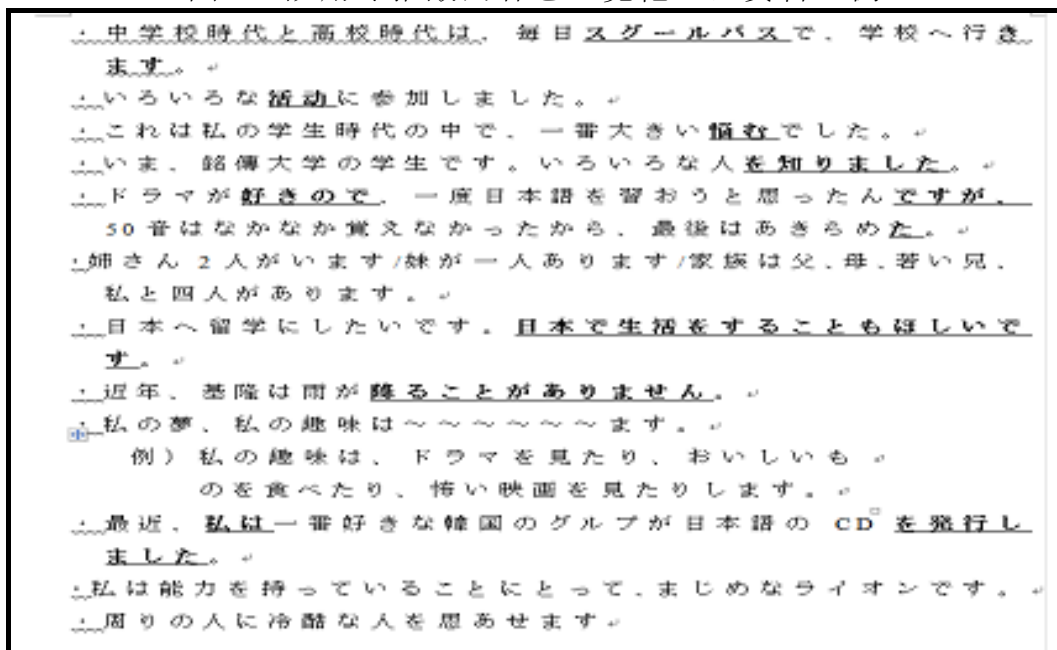 ・中学校時代と高校時代は、毎日スグールバスで、学校へ行き
ます。
・いろいろな活动に参加しました。
・これは私の学生時代の中で、一番大きい悩むでした。
・いま、銘傳大学の学生です。いろいろな人を知りました。
・ドラマが好きので、一度日本語を習おうと思ったんですが、
50音はなかなか覚えなかったから、最後はあきらめた。
・姉さん2人がいます/妹が一人あります/家族は父、母、若い兄、
私と四人があります。
・日本へ留学にしたいです。日本で生活をすることもほしいで
す。
・近年、基隆は雨が降ることがありません。
・私の夢、私の趣味は～～～～～～ます。
例）私の趣味は、ドラマを見たり、おいしいも
のを食べたり、怖い映画を見たりします。
・最近、私は一番好きな韓国のグルプが日本語の CD を発行し
ました。
・私は能力を持っていることにとって、まじめなライオンです。
・周りの人に冷酷な人を思あせます